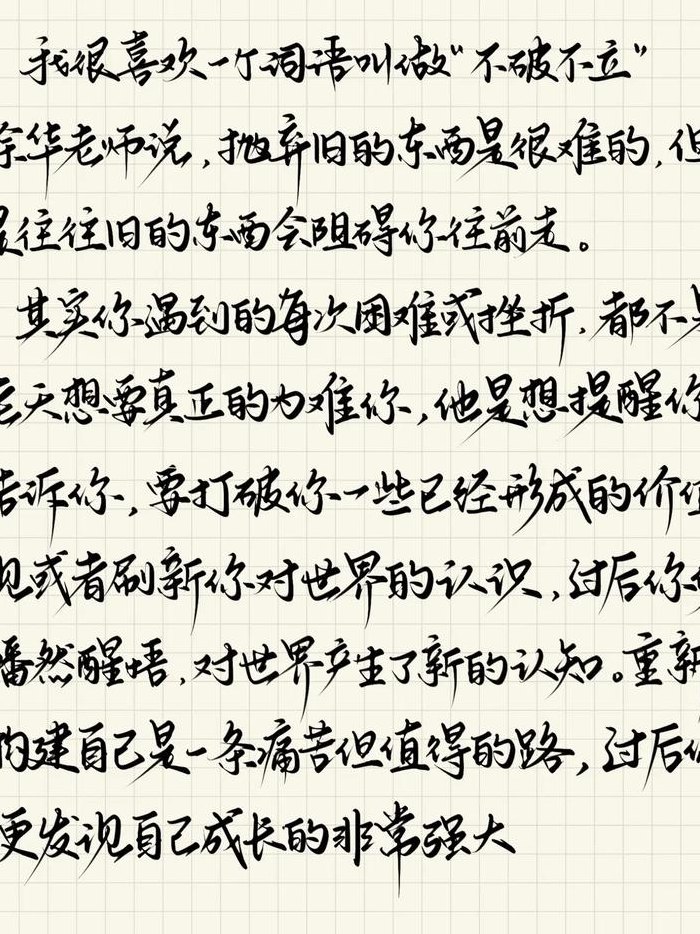 我很喜欢一个词语叫做“不破不立”
余华老师说，抛弃旧的东西是很难的，但
是往往旧的东西会阻碍你往前走。
其实你遇到的每次困难或挫折，都不是
老天想要真正的为难你，他是想提醒你
告诉你，要打破你一些已经形成的价值
观或者刷新你对世界的认识，过后你
幡然醒悟，对世界产生了新的认知。重新
构建自己是一条痛苦但值得的路，过后你
更发现自己成长的非常强大